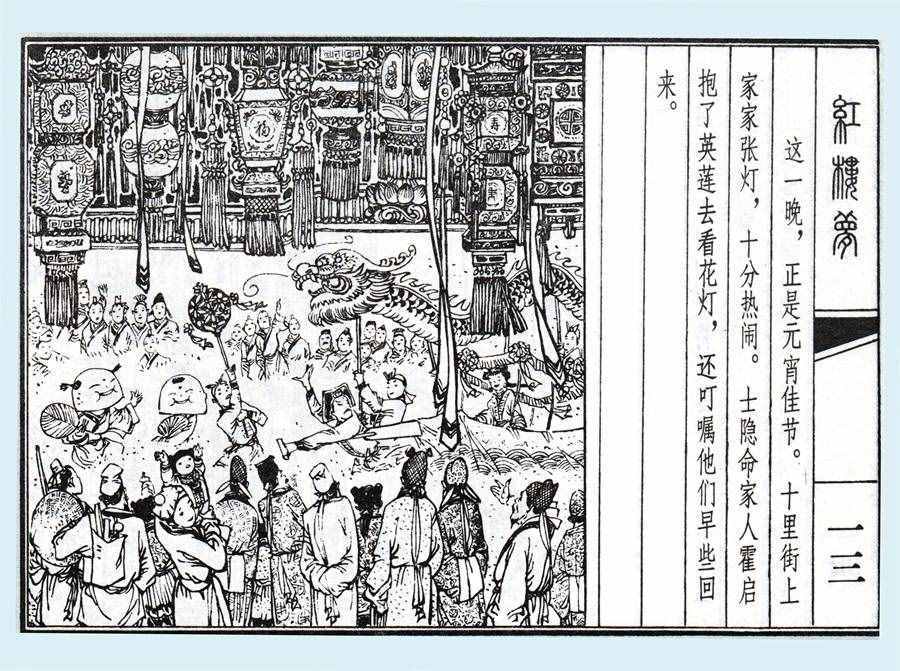 紅樓夢
一三
这一晚，正是元宵佳节。十里街上
家家张灯，十分热闹。士隐命家人霍启
抱了英莲去看花灯，还叮嘱他们早些回
来。
福
寿